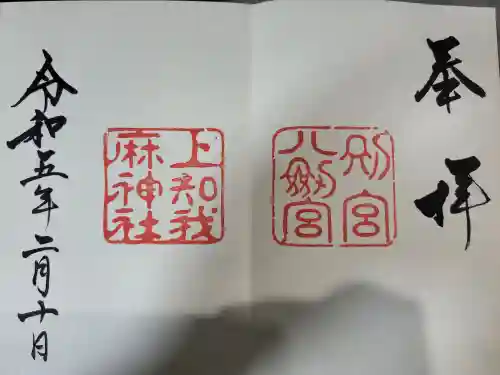 奉拝
別宮
八剱宮
上知我
麻神社
令和五年二月十日